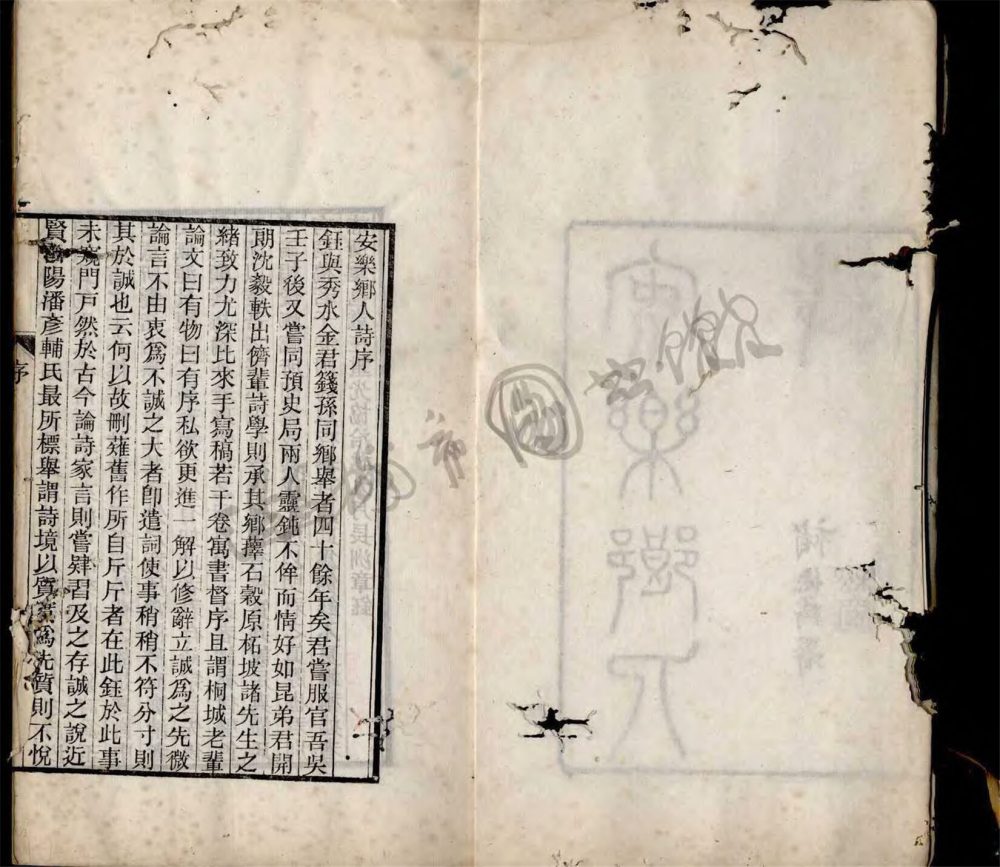 安樂鄉人詩序
鈺與秀水金君籛孫同鄉舉者四十餘年矣君嘗服官吾吳
壬子後又嘗同預史局兩人靈鈍不侔而情好如昆弟君開
朗沈毅軼出儕輩詩學則承其鄉蘀石穀原柘坡諸先生之
緒致力尤深比來手寫稿若干卷寓書督序且謂桐城老輩
論文曰有物曰有序私欲更進一解以修辭立誠爲之先微
論言不由衷爲不誠之大者卽遣詞使事稍稍不符分寸則
其於誠也云何以故刪薙舊作所自斤斤者在此鈺於此事
未窺門戸然於古今論詩家言則嘗肄習及之存誠之說近
賢 陽潘彥輔氏最所標舉謂詩境以質實爲先質則不悅
序
安樂鄉人